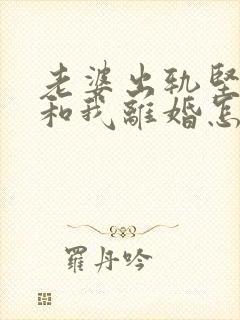 老婆出轨坚
和我離婚怎
羅丹吟